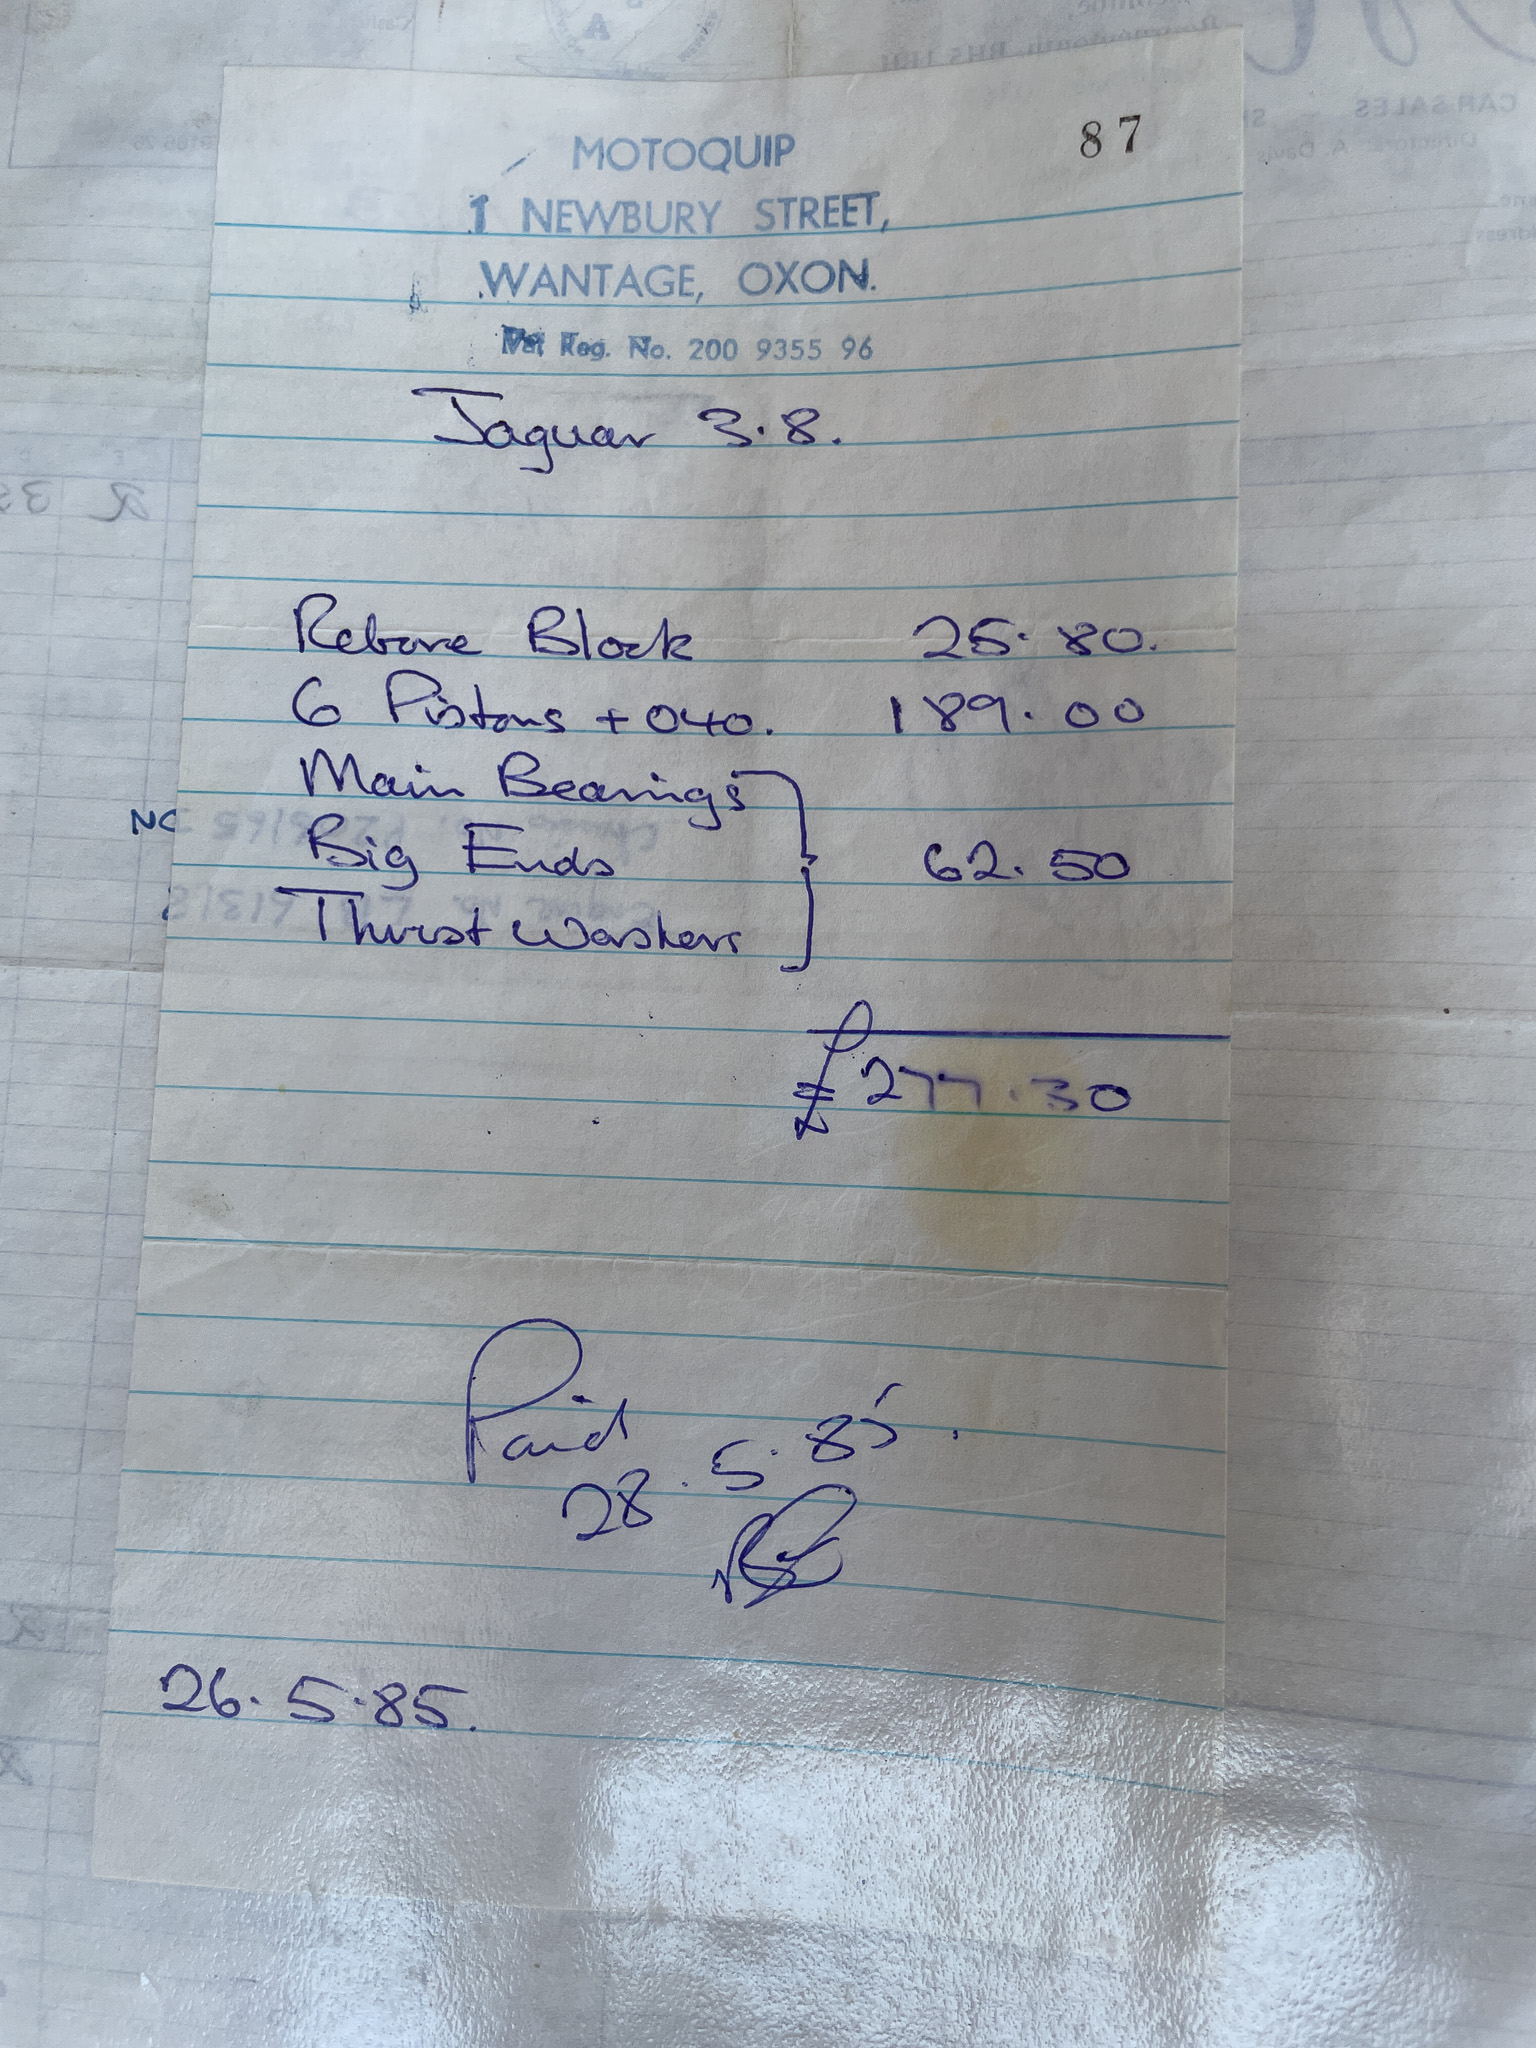 87
MOTOQUIP
1 NEWBURY STREET,
WANTAGE, OXON.
Vat Reg. No. 200 9355 96
Jaguar 3.8.
Rebore Block 25.80.
6 Pistons +040. 189.00
Main Bearings
NC
Big Ends 62.50
Thrust Washers
£277.30
Paid
28.5.85.
26.5.85.